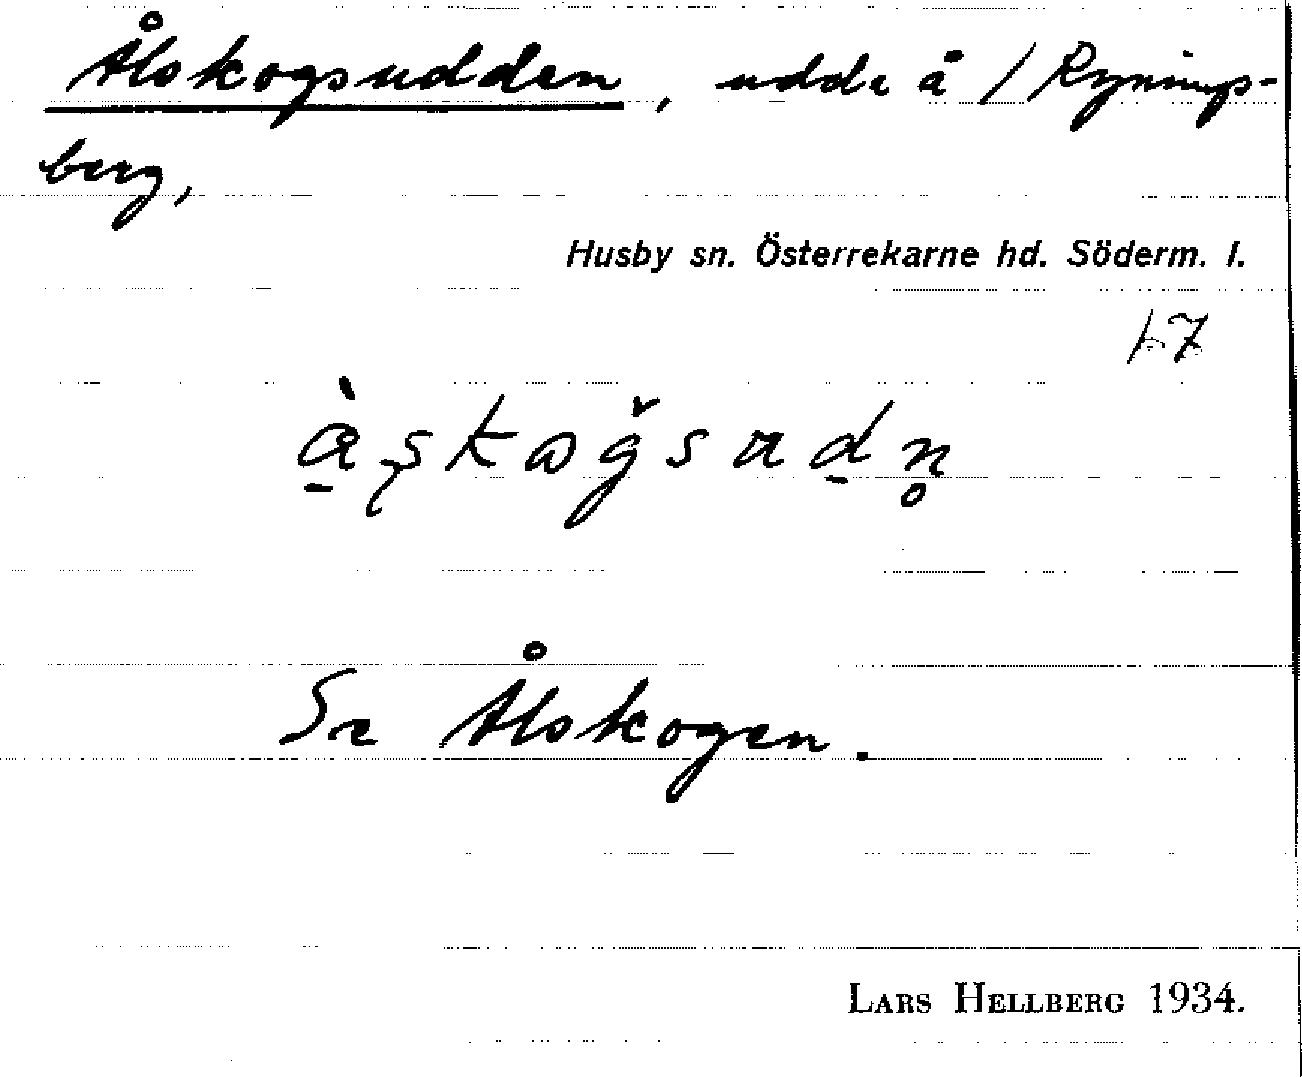 Ålskogsudden, udde å / Rynings-
berg,
Husby sn. Österrekarne hd. Söderm. l.
Se Ålskogen.
LARS HELLBERG 1934.